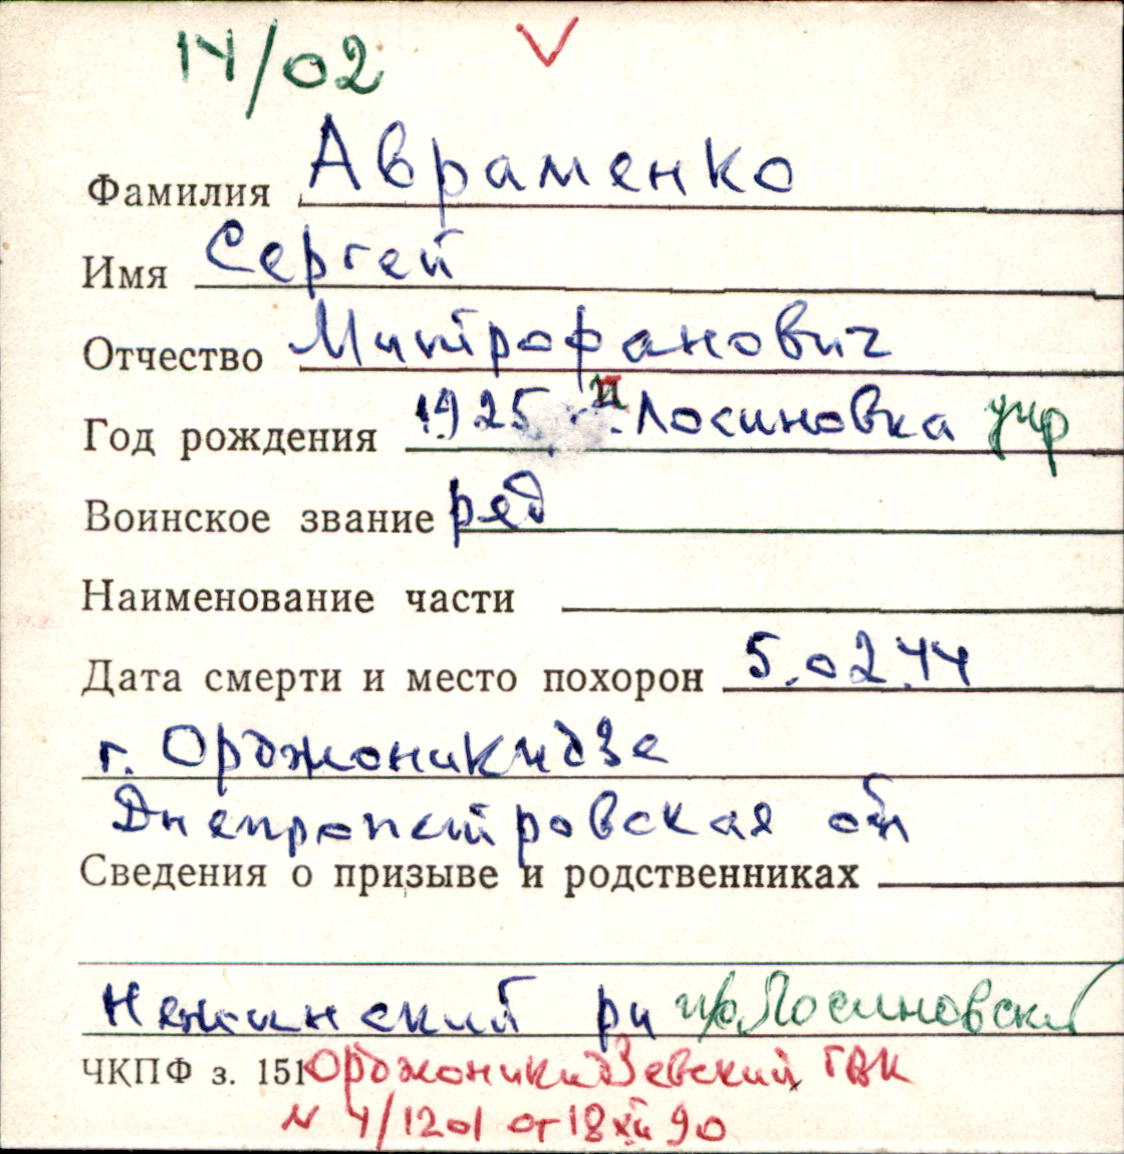 14/02 V
Фамилия Авраменко
Имя Сергей
Отчество Митрофанович
Год рождения 1925 п. Лосиновка учр
Воинское звание ряд
Наименование части
Дата смерти и место похорон 5.02.44
г. Орджоникидзе
Днепропетровская об
Сведения о призыве и родственниках
Нежинский рн Лосиновский
ЧКПФ з. 151 Орджоникидзевский ГВК
N 4/1201 от 18 XII 90